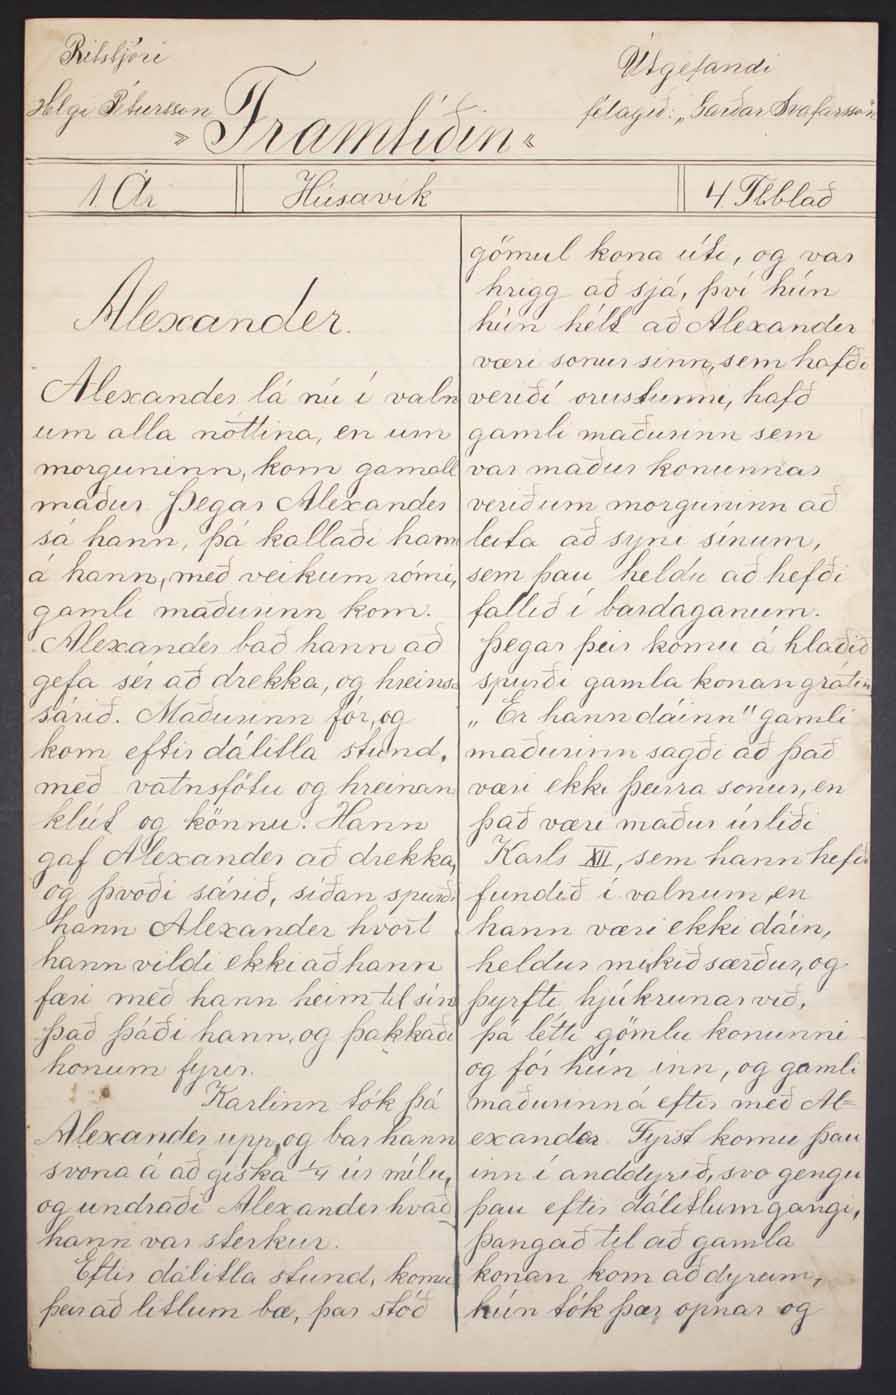 Ritstjóri
Helgi Pétursson
Útgefandi
félagið: „Garðar Svafarsson"
„Framtíðin"
1 Ár
Húsavík
4 Tbblað
Alexander.
Alexander lá nú í valn
um alla nóttina, en um
morguninn, kom gamall
maður. Þegar Alexander
sá hann, þá kallaði hann
á hann, með veikum rómi,
gamli maðurinn kom.
Alexander bað hann að
gefa sér að drekka, og hreinsa
sárið. Maðurinn fór, og
kom eftir dálitla stund,
með vatnsfötu og hreinan
klút og könnu. Hann
gaf Alexander að drekka,
og þvoði sárið, síðan spurði
hann Alexander hvort
hann vildi ekki að hann
færi með hann heim til sín
það þáði hann, og þakkaði
honum fyrir.
Karlinn tók þá
Alexander upp, og bar hann
svona á að giska 1/4 úr mílu,
og undraði Alexander hvað
hann var sterkur.
Eftir dálitla stund, komu
þeir að litlum bæ, þar stóð
gömul kona úti, og var
hrigg að sjá, því hún
hún hélt að Alexander
væri sonur sinn, sem hafði
verið í orustunni, hafð
gamli maðurinn sem
var maður konunnar
verið um morguninn að
leita að syni sínum,
sem þau heldu að hefði
fallið í bardaganum.
Þegar þeir komu á hlaðið
spurði gamla konan grátin
„Er hann dáinn" gamli
maðurinn sagði að það
væri ekki þeirra sonur, en
það væri maður úr liði
Karls XII, sem hann hefði
fundið í valnum, en
hann væri ekki dáin,
heldur mikið særður, og
þyrfti hjúkrunar við,
þá létti gömlu konunni
og fór hún inn, og gamli
maðurinn á eftir með Al=
exander. Fyrst komu þau
inn í anddyrið, svo gengu
þau eftir dálitlum gangi,
þangað til að gamla
konan kom að dyrum,
hún tók þær opnar og